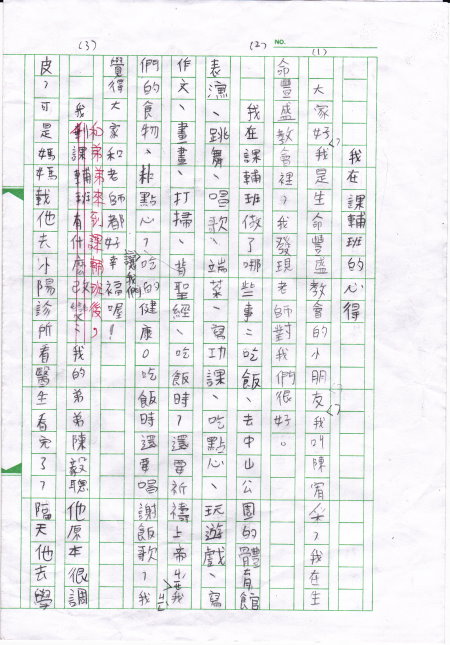 NO.
(1)
我在課輔班的心得
大家好,我是生命豐盛教會的小朋友,我叫陳宥尒,我在生
命豐盛教會裡,我發現老師對我們很好。
(2)
我在課輔班做了哪些事:吃飯、去中山公園的體育館
表演、跳舞、唱歌、端菜、寫功課、吃點心、玩遊戲、寫
作文、畫畫、打掃、背聖經、吃飯時,還要祈禱上帝ㄕㄤˇ我
們的食物、和點心,讓我們吃的健康。吃飯時還要唱謝飯歌,我ㄕㄜˊ
覺得大家和老師都好幸福喔!
(3)
我和弟弟來到課輔班後,有什麼改變:我的弟弟陳毅聰他原本很調
皮,可是媽媽載他去小陽診所看醫生看完了,隔天他去學